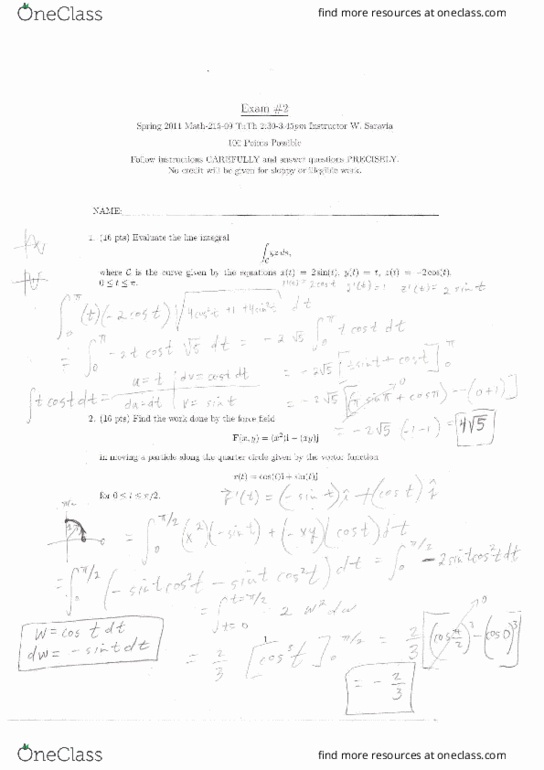 OneClass
find more resources at oneclass.com
Exam #2
Spring 2011 Math-215-09 TuTh 2:30-3:45pm Instructor W. Saravia
100 Points Possible
Follow instructions CAREFULLY and answer questions PRECISELY.
No credit will be given for sloppy or illegible work.
NAME:
1. (16 pts) Evaluate the line integral
∫_C yz ds,
where C is the curve given by the equations x(t) = 2sin(t), y(t) = t, z(t) = -2cos(t),
0 ≤ t ≤ π. x'(t) = 2cost y'(t) = 1 z'(t) = 2 sin t
∫_0^π (t)(-2 cos t) √(4cos²t + 1 + 4sin²t) dt
= ∫_0^π -2t cos t √5 dt = -2√5 ∫_0^π t cos t dt
u = t dv = cos t dt = -2√5 [t sin t + cos t]_0^π
∫ t cos t dt = du = dt v = sin t = -2√5 [(π sin π + cos π) - (0+1)]
2. (16 pts) Find the work done by the force field = -2√5 (-1-1) = 4√5
F(x, y) = (x²)i - (xy)j
in moving a particle along the quarter circle given by the vector function
r(t) = cos(t)i + sin(t)j
for 0 ≤ t ≤ π/2. r'(t) = (-sin t) i + (cos t) j
= ∫_0^π/2 (x²)(-sin t) + (-xy)(cos t) dt
= ∫_0^π/2 (-sin t cos²t - sin t cos²t) dt = ∫_0^π/2 -2 sin t cos²t dt
= ∫_t=0^t=π/2 2 w² dw
w = cos t dt
dw = -sin t dt
= 2/3 [cos³t]_0^π/2 = 2/3 [(cos π/2)³ - (cos 0)³]
= -2/3
OneClass
find more resources at oneclass.com